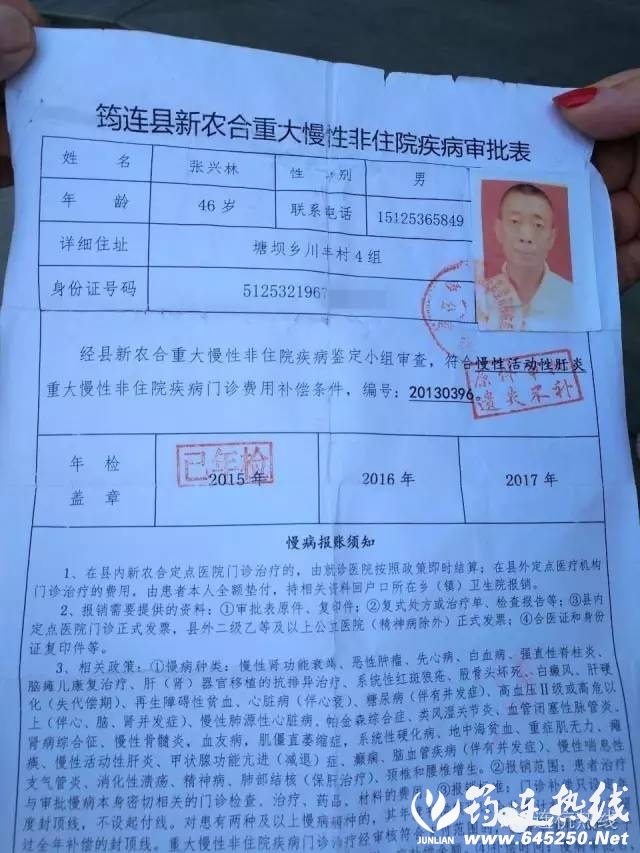 筠连县新农合重大慢性非住院疾病审批表
姓 名 张兴林 性 别 男
年 龄 46岁 联系电话 15125365849
详细住址 塘坝乡川丰村4组
身份证号码 5125321967
经县新农合重大慢性非住院疾病鉴定小组审查，符合慢性活动性肝炎
重大慢性非住院疾病门诊费用补偿条件，编号：20130396。
遗失不补
年 检
盖 章
已年检
2015年 2016年 2017年
慢病报账须知
1、在县内新农合定点医院门诊治疗的，由就诊医院按照政策即时结算；在县外定点医疗机构
门诊治疗的费用，由患者本人全额垫付，持相关资料回户口所在乡（镇）卫生院报销。
2、报销需要提供的资料：①审批表原件、复印件；②复式处方或治疗单、检查报告等；③县内
定点医院门诊正式发票，县外二级乙等及以上公立医院（精神病除外）正式发票；④合医证和身份
证复印件等。
3、相关政策：①慢病种类：慢性肾功能衰竭、恶性肿瘤、先心病、白血病、强直性脊柱炎、
脑瘫儿康复治疗、肝（肾）器官移植的抗排异治疗、系统性红斑狼疮、股骨头坏死、白癜风、肝硬
化（失代偿期）、再生障碍性贫血、心脏病（伴心衰）、糖尿病（伴有并发症）、高血压Ⅱ级或高危以
上（伴心、脑、肾并发症）、慢性肺源性心脏病、帕金森综合症、类风湿关节炎、血管闭塞性脉管炎、
肾病综合征、慢性骨髓炎，血友病，肌僵直萎缩症，系统性硬化病、地中海贫血、重症肌无力、瘫
痪、慢性活动性肝炎、甲状腺功能亢进（减退）症、癫痫、脑血管疾病（伴有并发症）、慢性喘息性
支气管炎、消化性溃疡、精神病、肺部结核（保肝治疗）、颈椎和腰椎增生。②报销范围：患者治疗
与审批慢病本身密切相关的门诊检查、治疗、药品、材料的费用
度封顶线，不设起付线。对患有两种及以上慢病
过全年补偿的封顶线。重大慢性非住院疾病门诊治疗经审核符合
筠连热线
JUNLIAN
www.645250.Net